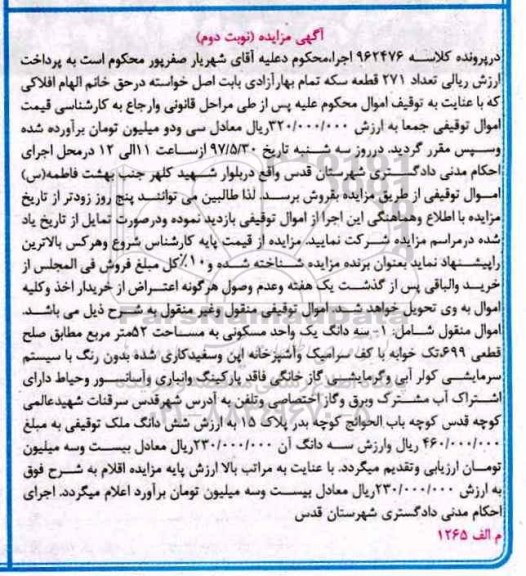 آگهی مزایده (نوبت دوم)
درپرونده کلاسه ۹۶۲۴۷۶ اجرا،محکوم دعلیه آقای شهریار صفرپور محکوم است به پرداخت
ارزش ریالی تعداد ۲۷۱ قطعه سکه تمام بهارآزادی بابت اصل خواسته درحق خانم الهام افلاکی
که با عنایت به توقیف اموال محکوم علیه پس از طی مراحل قانونی وارجاع به کارشناسی قیمت
اموال توقیفی جمعا به ارزش ۳۲۰/۰۰۰/۰۰۰ریال معادل سی ودو میلیون تومان برآورده شده
وسپس مقرر گردید. درروز سه شنبه تاریخ ۹۷/۵/۳۰ ازساعت ۱۱الی ۱۲ درمحل اجرای
احکام مدنی دادگستری شهرستان قدس واقع دربلوار شهید کلهر جنب بهشت فاطمه(س)
اموال توقیفی از طریق مزایده بفروش برسد. لذا طالبین می توانند پنج روز زودتر از تاریخ
مزایده با اطلاع وهماهنگی این اجرا از اموال توقیفی بازدید نموده ودرصورت تمایل از تاریخ یاد
شده درمراسم مزایده شرکت نمایید. مزایده از قیمت پایه کارشناس شروع وهرکس بالاترین
راپیشنهاد نماید بعنوان برنده مزایده شناخته شده و۱۰٪کل مبلغ فروش فی المجلس از
خرید والباقی پس از گذشت یک هفته وعدم وصول هرگونه اعتراض از خریدار اخذ وکلیه
اموال به وی تحویل خواهد شد. اموال توقیفی منقول وغیر منقول به شرح ذیل می باشد.
اموال منقول شامل: ۱- سه دانگ یک واحد مسکونی به مساحت ۵۲متر مربع مطابق صلح
قطعی ۶۹۹،تک خوابه با کف سرامیک وآشپزخانه اپن وسفیدکاری شده بدون رنگ با سیستم
سرمایشی کولر آبی وگرمایشی گاز خانگی فاقد پارکینگ وانباری وآسانسور وحیاط دارای
اشتراک آب مشترک وبرق وگاز اختصاصی وتلفن به آدرس شهرقدس سرقنات شهیدعالمی
کوچه قدس کوچه باب الحوائج کوچه بدر پلاک ۱۵ به ارزش شش دانگ ملک توقیفی به مبلغ
۴۶۰/۰۰۰/۰۰۰ ریال وارزش سه دانگ آن ۲۳۰/۰۰۰/۰۰۰ریال معادل بیست وسه میلیون
تومان ارزیابی وتقدیم میگردد. با عنایت به مراتب بالا ارزش پایه مزایده اقلام به شرح فوق
به ارزش ۲۳۰/۰۰۰/۰۰۰ریال معادل بیست وسه میلیون تومان برآورد اعلام میگردد. اجرای
احکام مدنی دادگستری شهرستان قدس
م الف ۱۲۶۵